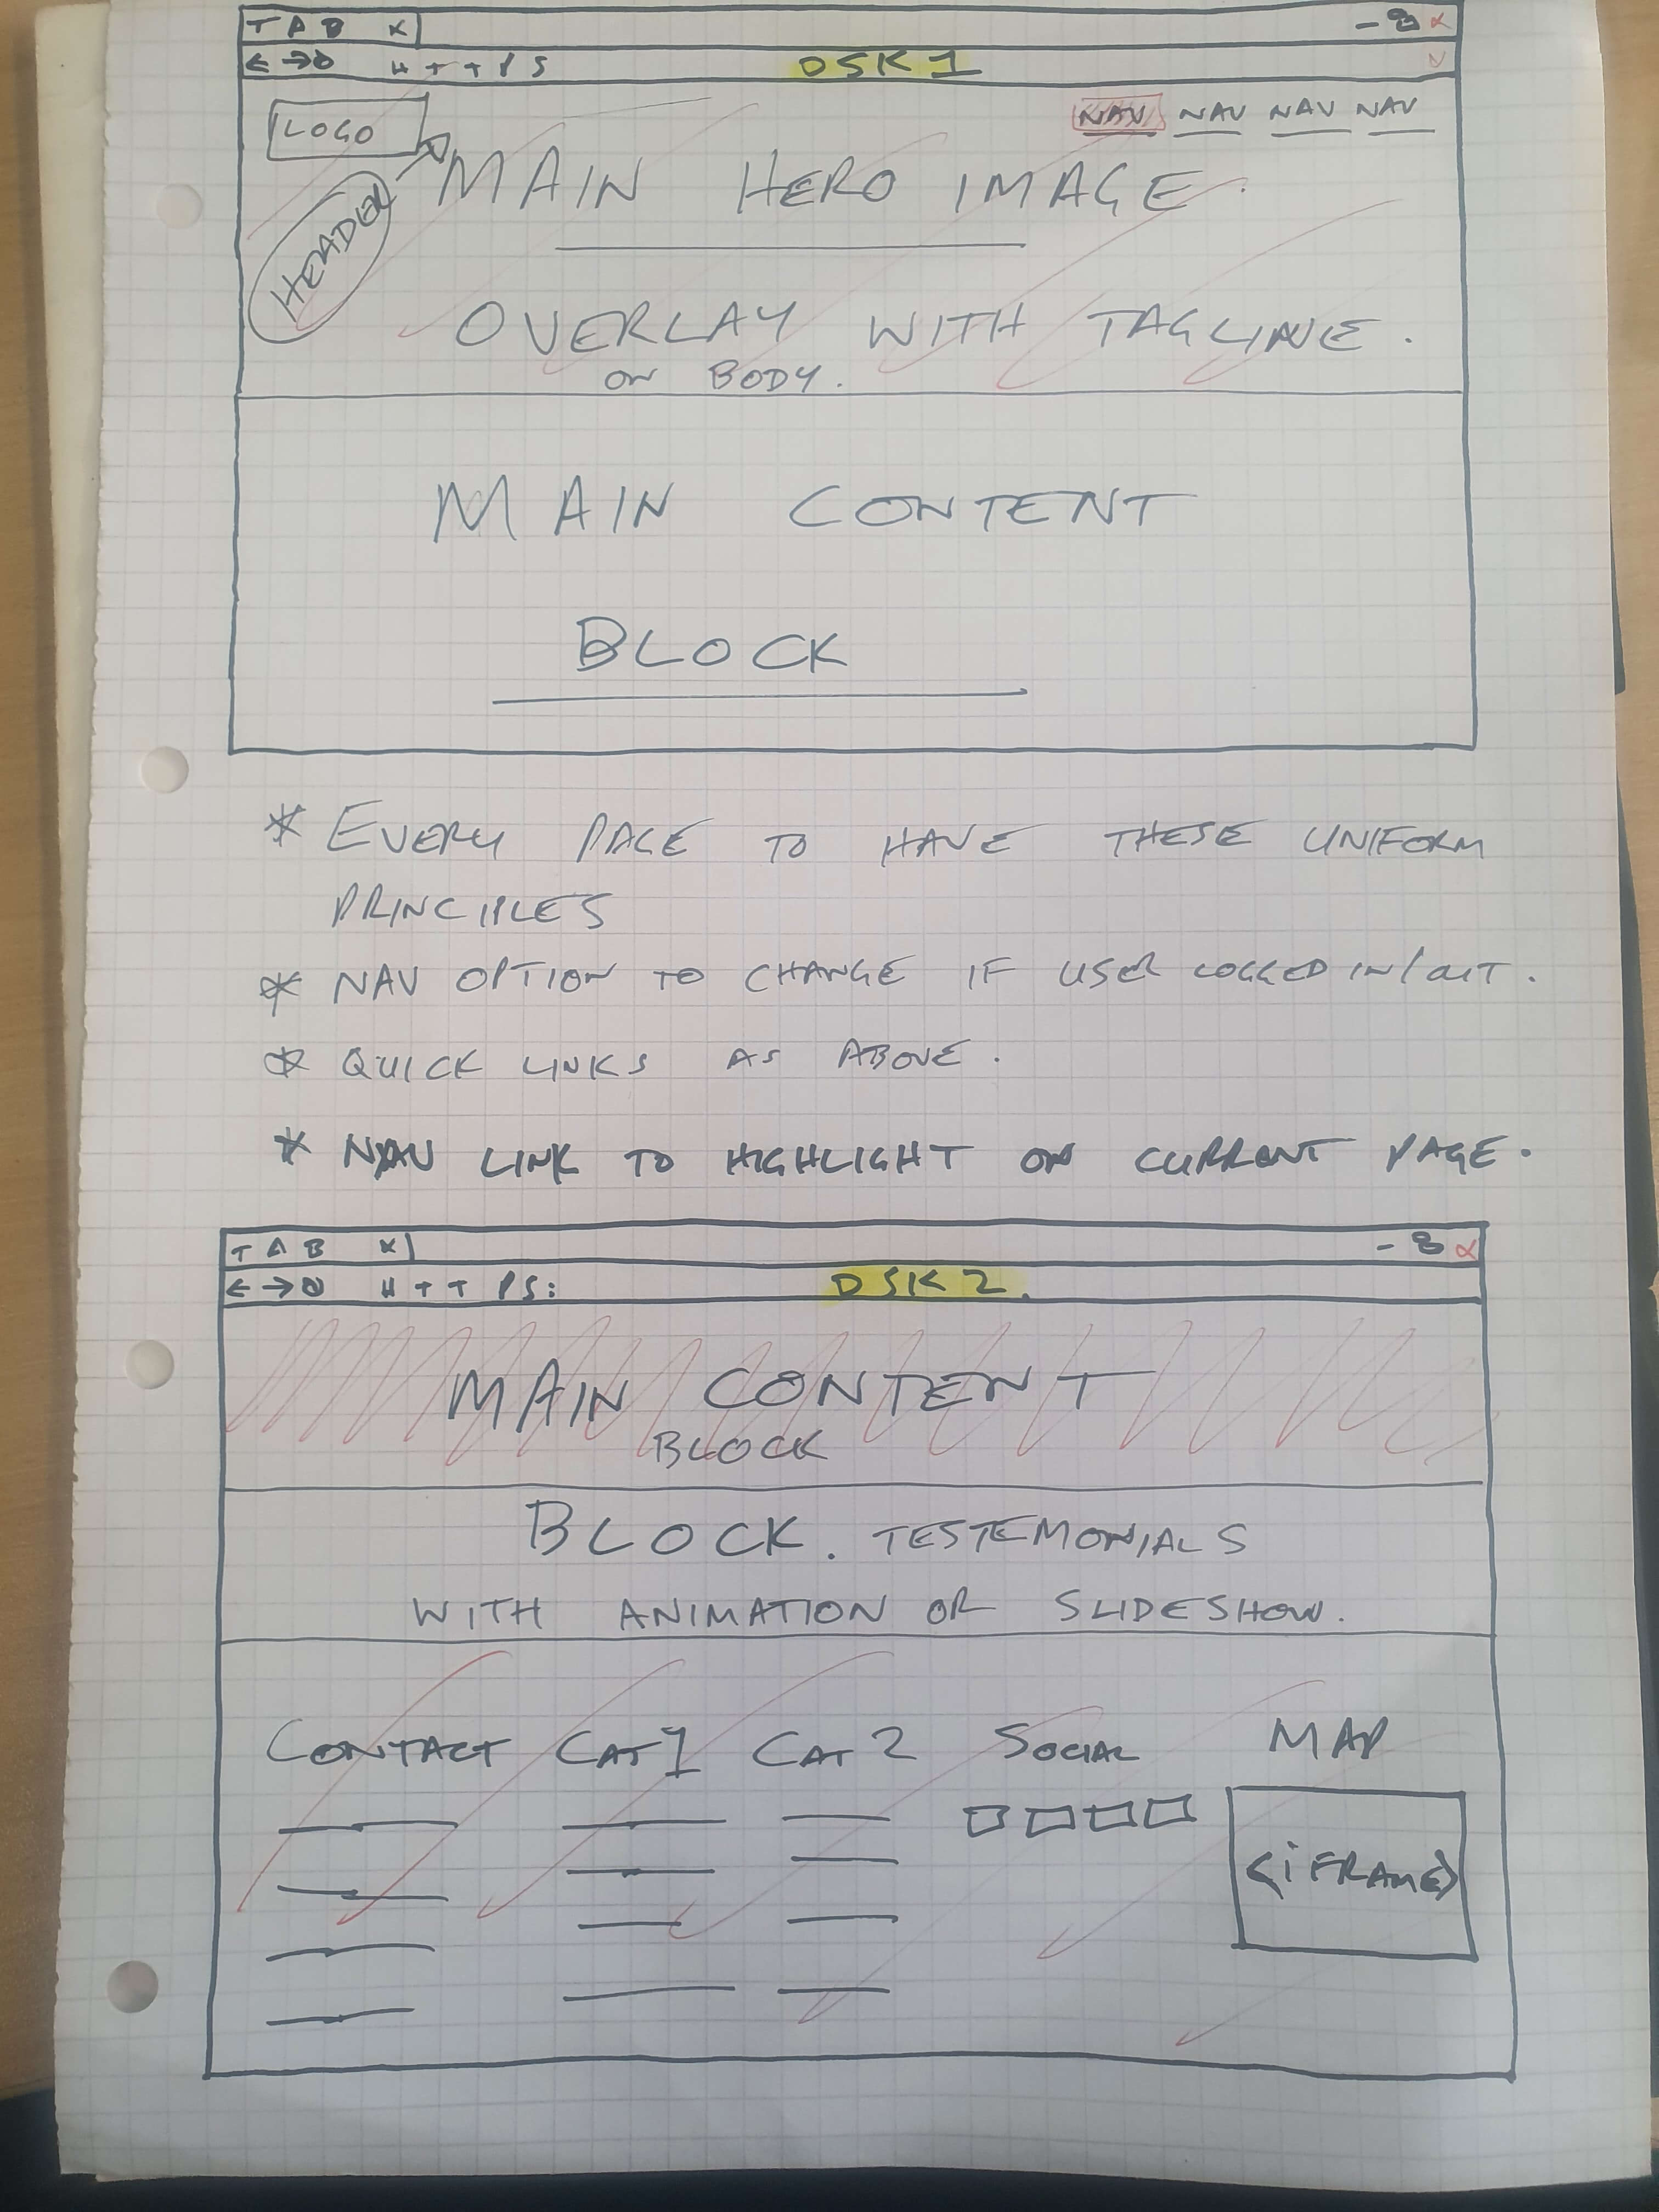 TAB X
HTTPS DSK 1
LOGO NAV NAV NAV NAV
MAIN HERO IMAGE.
HEADER
OVERLAY WITH TAGLINE.
ON BODY.
MAIN CONTENT
BLOCK
* EVERY PAGE TO HAVE THESE UNIFORM
PRINCIPLES
* NAV OPTION TO CHANGE IF USER LOGGED IN/OUT.
* QUICK LINKS AS ABOVE.
* NAV LINK TO HIGHLIGHT ON CURRENT PAGE.
TAB X
HTTPS: DSK 2.
MAIN CONTENT
BLOCK
BLOCK. TESTEMONIALS
WITH ANIMATION OR SLIDESHOW.
CONTACT CAT 1 CAT 2 SOCIAL MAP
<iFRAME>